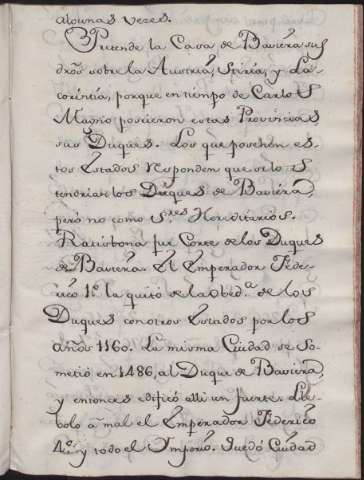 algunas veces.
Pretende la Casa de Baviera sus
dros sobre la Austria, Stiria, y Ca-
rintia, porque en tiempo de Carlo S
Magno poseieron estas Provincias
sus Duques. Los que posehen es-
tos Estados responden que si los
tendrian los Duques de Baviera,
pero no como S.res Hereditarios.
Ratisbona fue Corte de los Duques
de Baviera. El Emperador Fede-
rico 1.º la quitó de la Obed.a de los
Duques con otros Estados por los
años 1160. La misma Ciudad se so-
metió en 1486, al Duque de Baviera,
y entonces edificó alli un fuerte. Lle-
bolo a mal el Emperador Federico
4.º y todo el Imperio. Quedó Ciudad